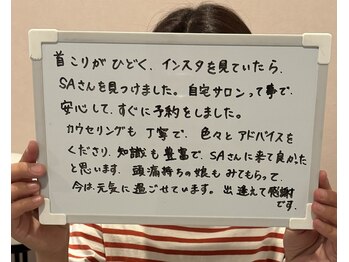 首こりがひどく、インスタを見ていたら、
SAさんを見つけました。自宅サロンって事で、
安心して、すぐに予約をしました。
カウセリングも丁寧で、色々とアドバイスを
くださり、知識も豊富で、SAさんに来て良かった
と思います。頭痛持ちの娘もみてもらって、
今は、元気に過ごせています。出逢えて感謝
です。